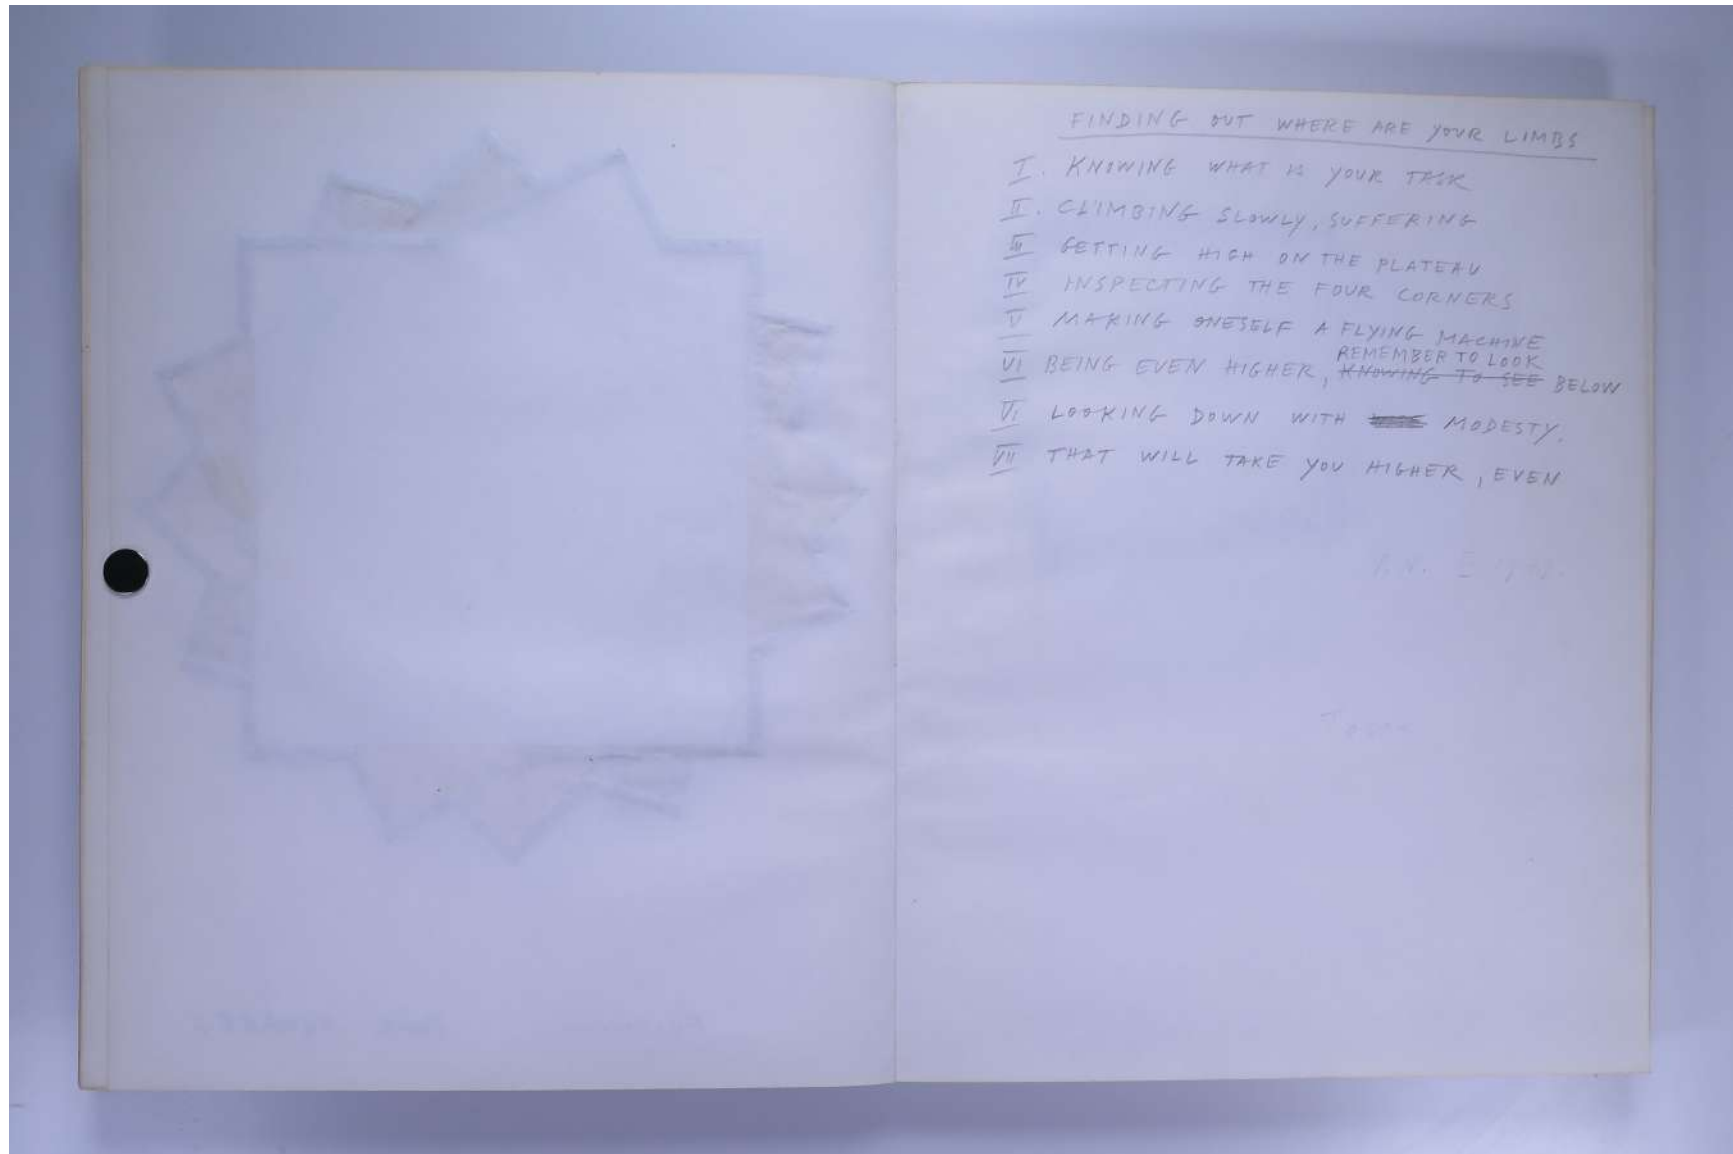 FINDING OUT WHERE ARE YOUR LIMBS
I. KNOWING WHAT IS YOUR TASK
II. CLIMBING SLOWLY, SUFFERING
III GETTING HIGH ON THE PLATEAU
IV INSPECTING THE FOUR CORNERS
V MAKING ONESELF A FLYING MACHINE
REMEMBER TO LOOK
VI BEING EVEN HIGHER, KNOWING TO SEE BELOW
VI LOOKING DOWN WITH MODESTY.
VII THAT WILL TAKE YOU HIGHER, EVEN